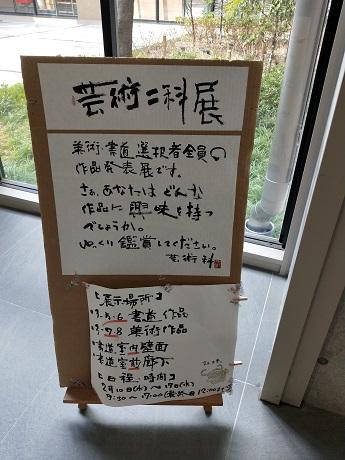 芸術二科展
美術・書道選択者全員の
作品発表展です。
さぁ、あなたは どんな
作品に 興味を持つ
でしょうか。
ゆっくり 鑑賞してください。
芸術科
【展示場所】
書道作品
美術作品
書道室内壁面
書道室前廊下
【日程・時間】
2月10日(水)〜17日(水)
9:30〜17:00(最終日12:00まで)